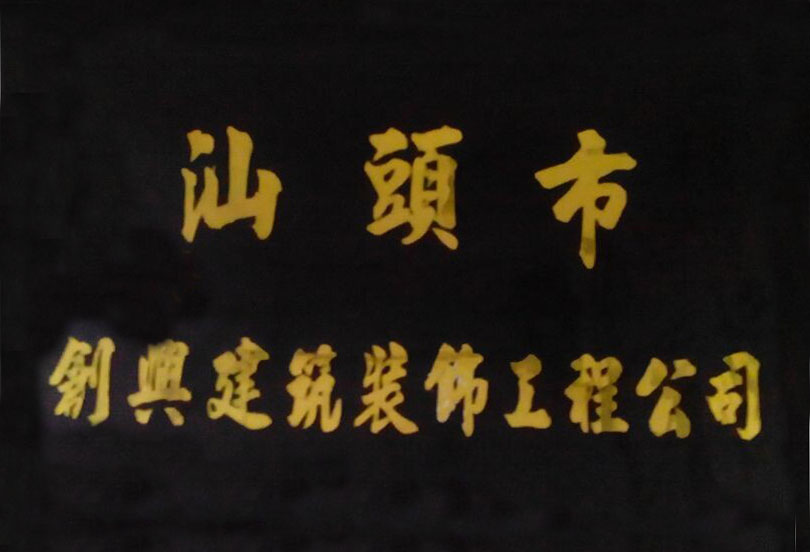 汕頭市
創興建筑装飾工程公司